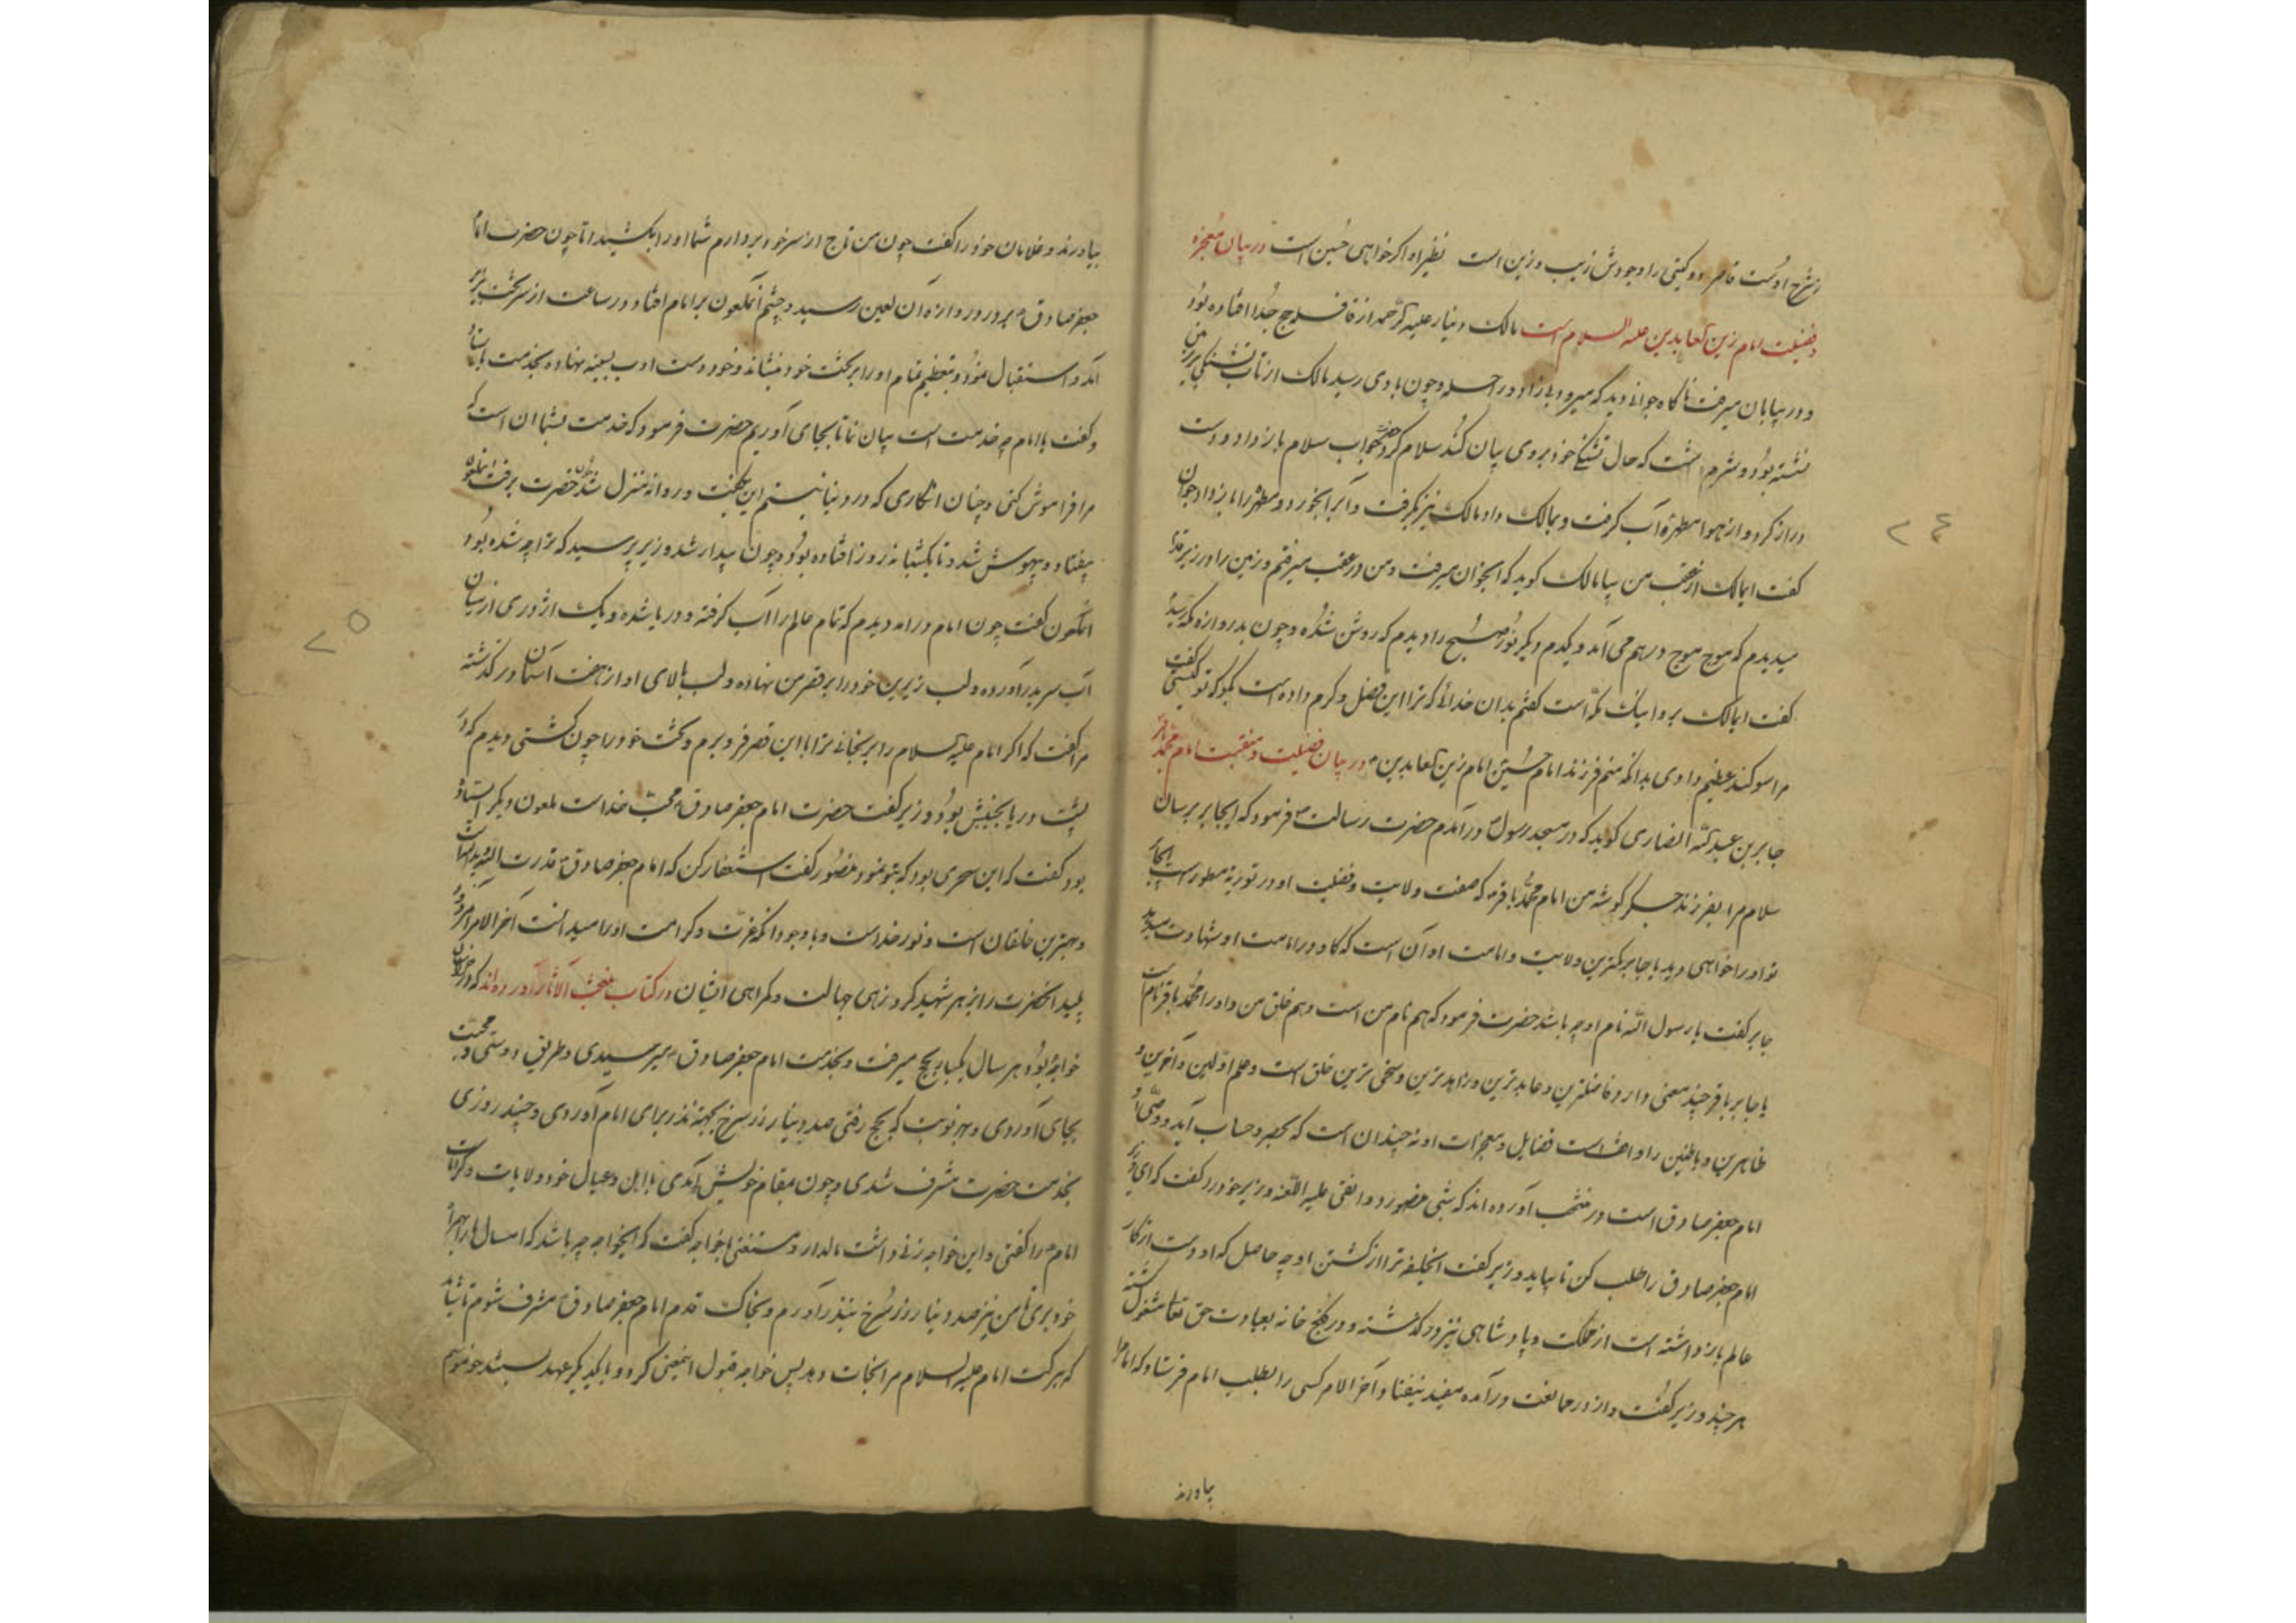 ز شرح اوست قاصر دو کیتی را وجودش زیب و زین است نظیر او اکر خواهی حسین است در بیان معجزه
و فضیلت امام زین العابدین علیه السلام است مالک دینار علیه الرحمه از قافله حج جدا افتاده بود
و در بیابان میرفت ناکاه جوانی دید که میرود بی زاد و راحله و چون با وی رسید مالک از تاب تشنکی بر زمین
نشسته بود و شرم داشت که حال تشنکی خود بر وی بیان کند سلام کرد حضرت جواب سلام باز داد و دست
دراز کرد و از هوا مطهره آب کرفت و بمالک داد مالک نیز بکرفت و آبرا بخورد و مطهره را باز داد جوان
کفت ایمالک از عقب من بیا مالک کوید که آنجوان میرفت و من در عقب میرفتم و زمین را در زیر قدم
میدیدم که موج موج در هم می آمد و یکدم دیکر نور صبح را دیدم که روشن شده و چون بدروازه مکه رسید
کفت ایمالک برو اینک مکه است کفتم بدان خدائی که ترا این فضل و کرم داده است بکو که تو کیستی کفت
مرا سوکند عظیم دادی بدانکه منم فرزند امام حسین امام زین العابدین در بیان فضیلت و منقبت امام محمد باقر
جابر بن عبد الله انصاری کوید که در مسجد رسول در آمدم حضرت رسالت فرمود که ایجابر برسان
سلام مرا بفرزند جکر کوشه من امام محمد باقر که صفت ولایت و فضیلت او در توریة مسطور است ایجابر
تو او را خواهی دید یا جابر کمترین ولایت و امامت او آن است که کاو در امامت او شهادت میدهد
جابر کفت یا رسول الله نام او چه باشد حضرت فرمود که هم نام من است و هم خلق من و او را محمد باقر نام است
یا جابر باقر چند معنی دارد فاضلترین و عابد ترین و زاهد ترین و سخی ترین خلق است و علم اولین و آخرین و
ظاهرین و باطنین را داناست فضایل و معجزات او نه چندان است که بحصر و حساب آید و وصی او
امام جعفر صادق است در منتخب آورده اند که شبی منصور دوانقی علیه اللعنه وزیر خود را کفت که ای وزیر
امام جعفر صادق را طلب کن تا بیاید وزیر کفت ایخلیفه ترا از کشتن او چه حاصل که او دست از کار
عالم باز داشته است از مملکت و پادشاهی نیز در کذشته و در کنج خانه بعبادت حق تعا مشغول کشته
هر چند وزیر کفت و از در ممانعت در آمده مفید نیفتاد آخر الامر کسی را بطلب امام فرستاد که امام را
بیاورند
۲۴
بیاورند و غلامان خود را کفت چون من تاج از سر خود بردارم شما او را بکشید اما چون حضرت امام
جعفر صادق بر در دروازه آن لعین رسید و چشم آنملعون بر امام افتاد در ساعت از سر تخت بزیر
آمد و استقبال نمود و بتعظیم تمام او را بر تخت خود بنشاند و خود دست ادب بسینه نهاده بخدمت بایستاد
و کفت یا امام چه خدمت است بیان نما تا بجای آوریم حضرت فرمود که خدمت شما ان است که
مرا فراموش کنی و چنان انکاری که در دنیا نیستم این بکفت و روانه منزل شد چون حضرت برفت آنملعون
بیفتاد و بیهوش شد و تا یکشبانه روز افتاده بود و چون بیدار شد وزیر پرسید که ترا چه شده بود
انملعون کفت چون امام درامد دیدم که تمام عالم را آب کرفته و دریا شده و یک اژدری از میان
آب سر بدر آورده و لب زیرین خود را بر قصر من نهاده و لب بالای او از هفت آسمان در کذشته
مرا کفت که اکر امام علیه السلام را برنجانی ترا با این قصر فرو برم و تخت خود را چون کشتی دیدم که در
پشت دریا بجنبش بود وزیر کفت حضرت امام جعفر صادق محب خداست ملعون دیکر ایستاده
بود کفت که این سحری بود که بتو نمود منصور کفت استغفار کن که امام جعفر صادق قدرت الله است
و بهترین خلقان است و نور خداست و با وجود انکه عزت و کرامت او را میدانست آخر الامر آنمردود
پلید انحضرت را بزهر شهید کرد زهی جهالت و کمراهی ایشان در کتاب منتخب الآثار آورده اند که در خراسان
خواجه بود هر سال یکبار بحج میرفت و بخدمت امام جعفر صادق میرسیدی و طریق دوستی و محبت
بجای آوردی و بهر نوبت که بحج رفتی صد دینار زر سرخ بجهة نذر برای امام آوردی و چند روزی
بخدمت حضرت مشرف شدی و چون بمقام خویش آمدی با اهل و عیال خود ولایات و کرامات
امام را کفتی و این خواجه زنی داشت مالدار و مستغنی با خواجه کفت که ایخواجه چه باشد که امسال مرا بهمراه
خود بری تا من نیز صد دینار زر سرخ بنذر آورم و بخاک قدم امام جعفر صادق مشرف شوم تا شاید
که ببرکت امام علیه السلام مرا نجات دهد پس خواجه قبول اینمعنی کرد و با یکدیکر عهد بستند چون موسم
۲۵